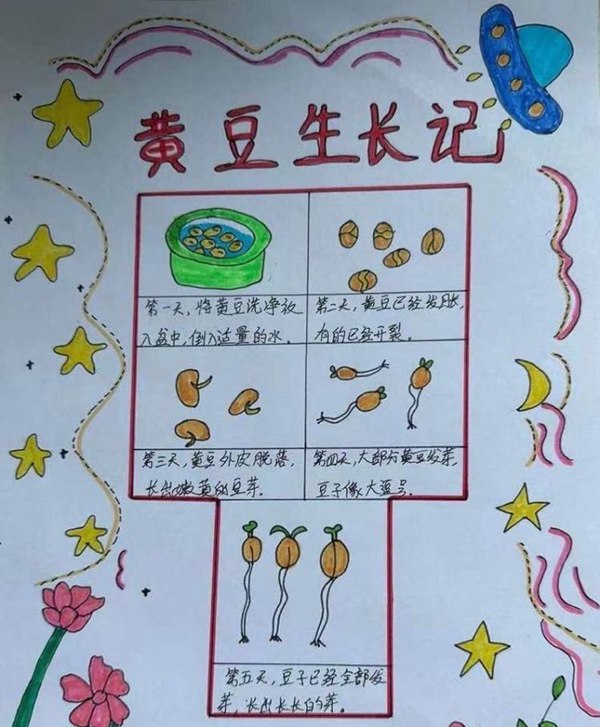 黄豆生长记
第一天,将黄豆洗净放
入盆中,倒入适量的水.
第二天,黄豆已经发胀,
有的已经开裂.
第三天,黄豆外皮脱落,
长出嫩黄的豆芽.
第四天,大部分黄豆发芽,
豆子像大逗号.
第五天,豆子已经全部发
芽,长出长长的芽.